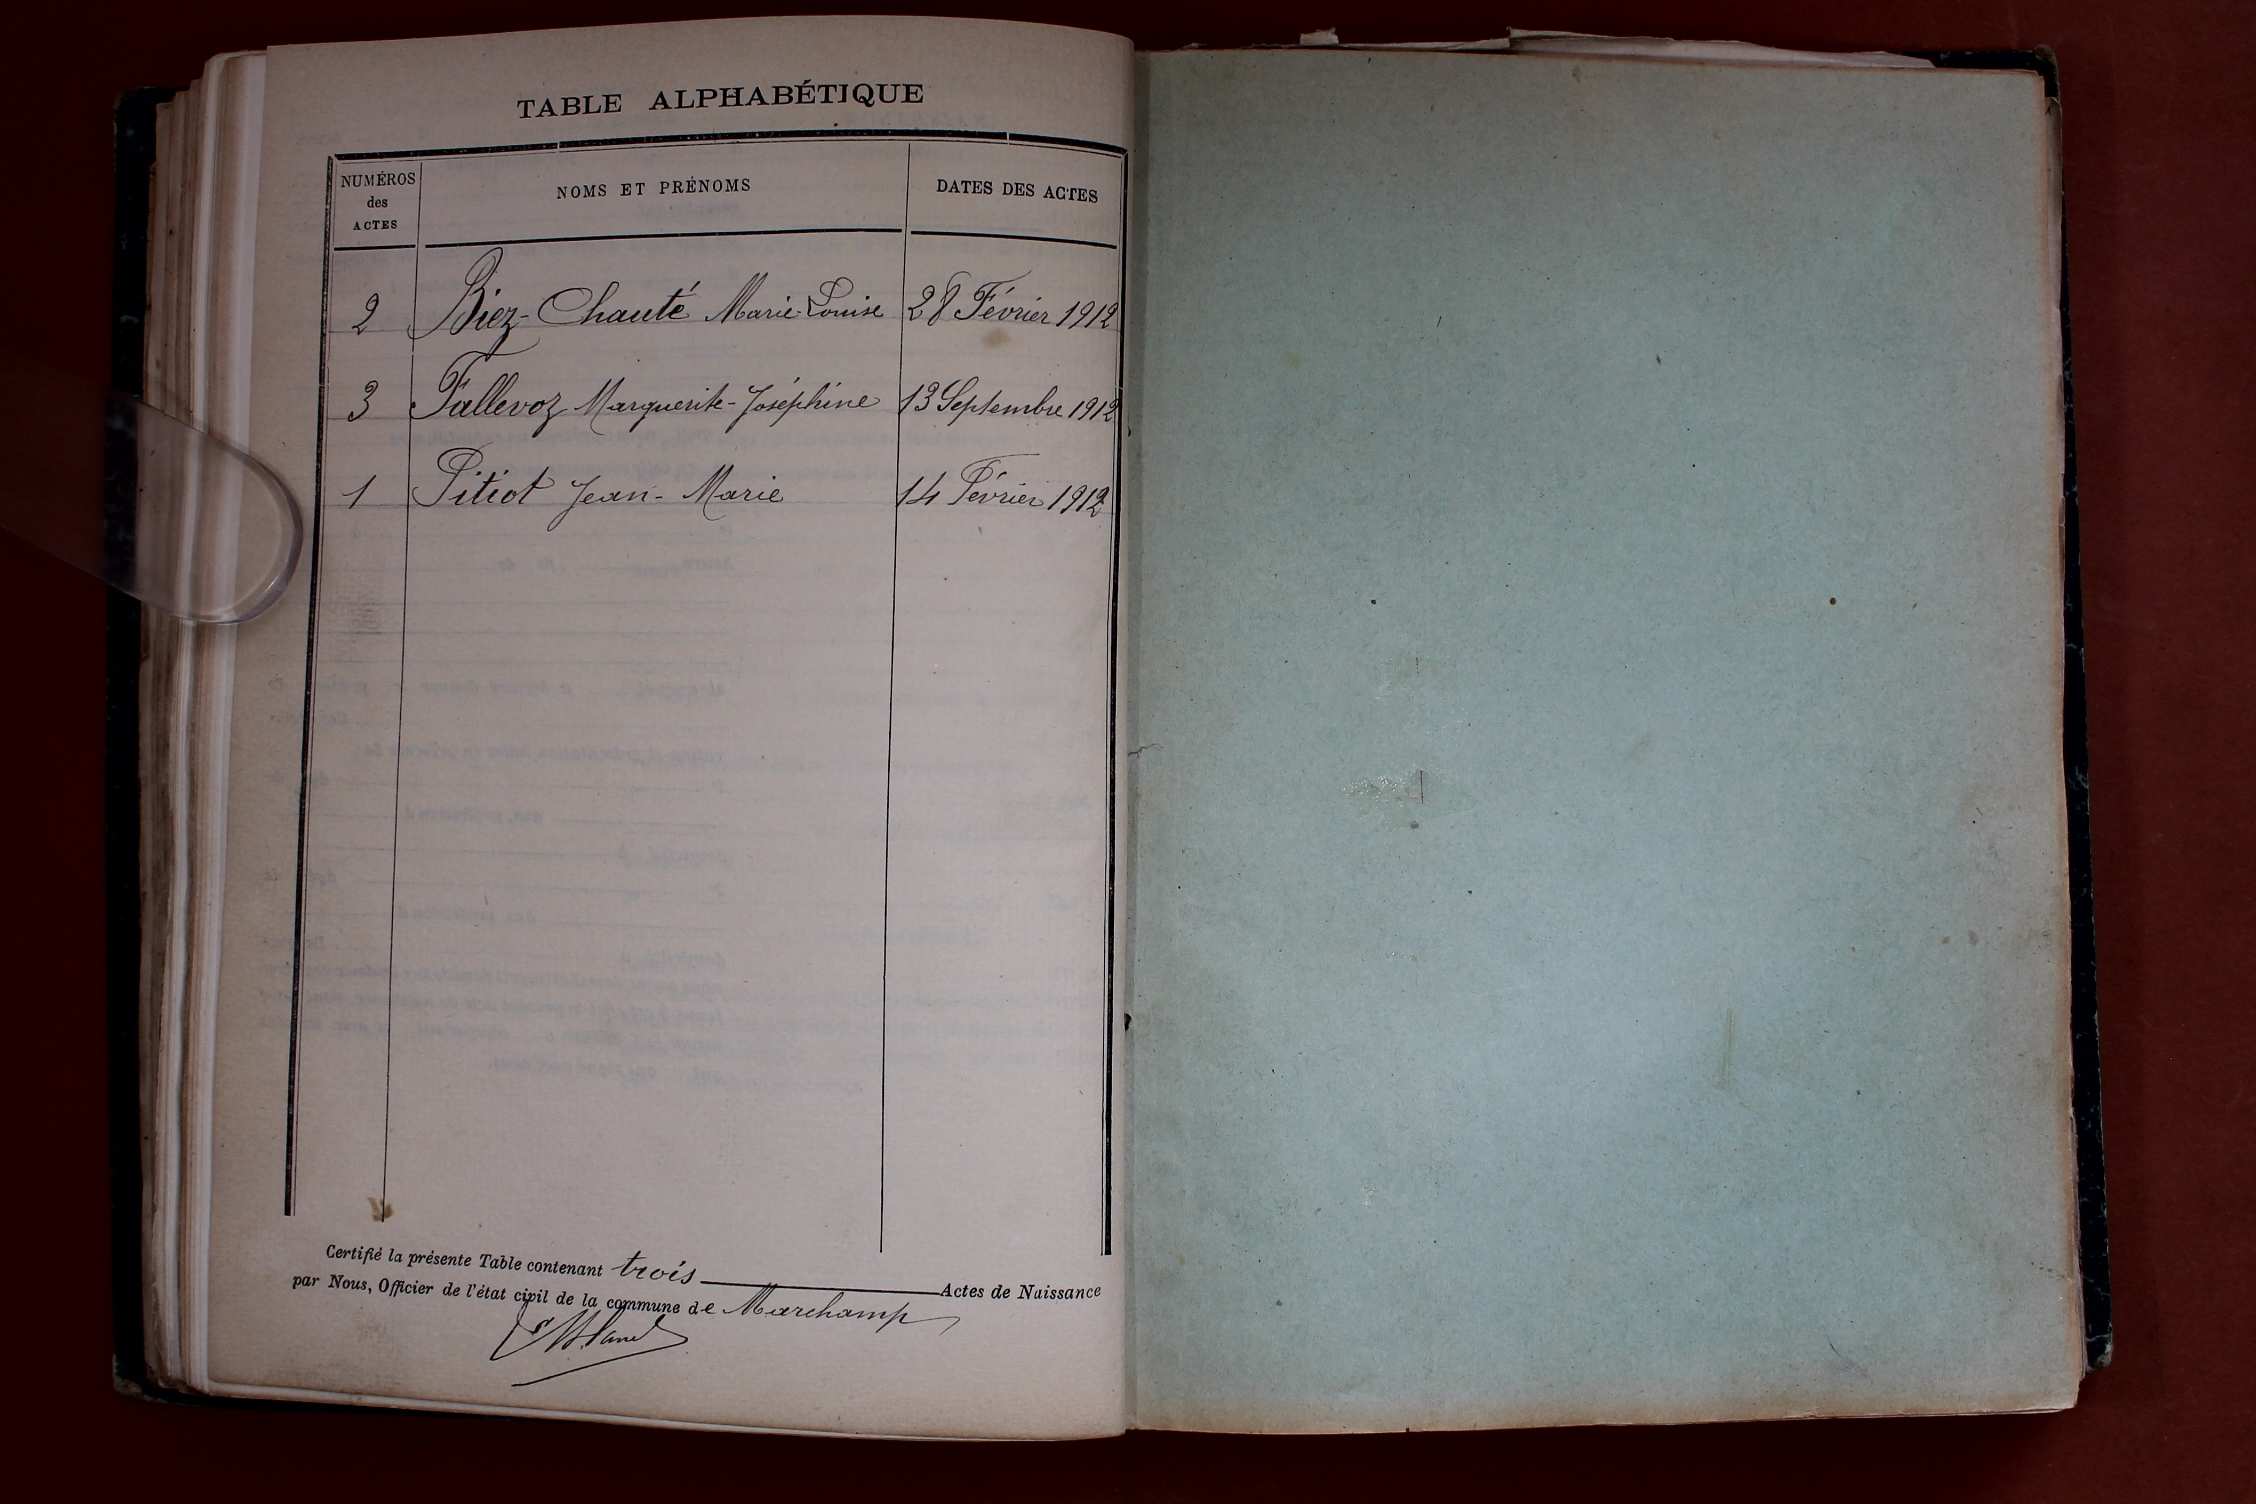 TABLE ALPHABÉTIQUE
NUMÉROS
des
ACTES
NOMS ET PRÉNOMS
DATES DES ACTES
2 Biez-Chauté Marie-Louise 28 Février 1912
3 Fallevoz Marguerite-Joséphine 13 Septembre 1912
1 Pitiot Jean-Marie 14 Février 1912
Certifié la présente Table contenant trois Actes de Naissance
par Nous, Officier de l'état civil de la commune de Marchamp